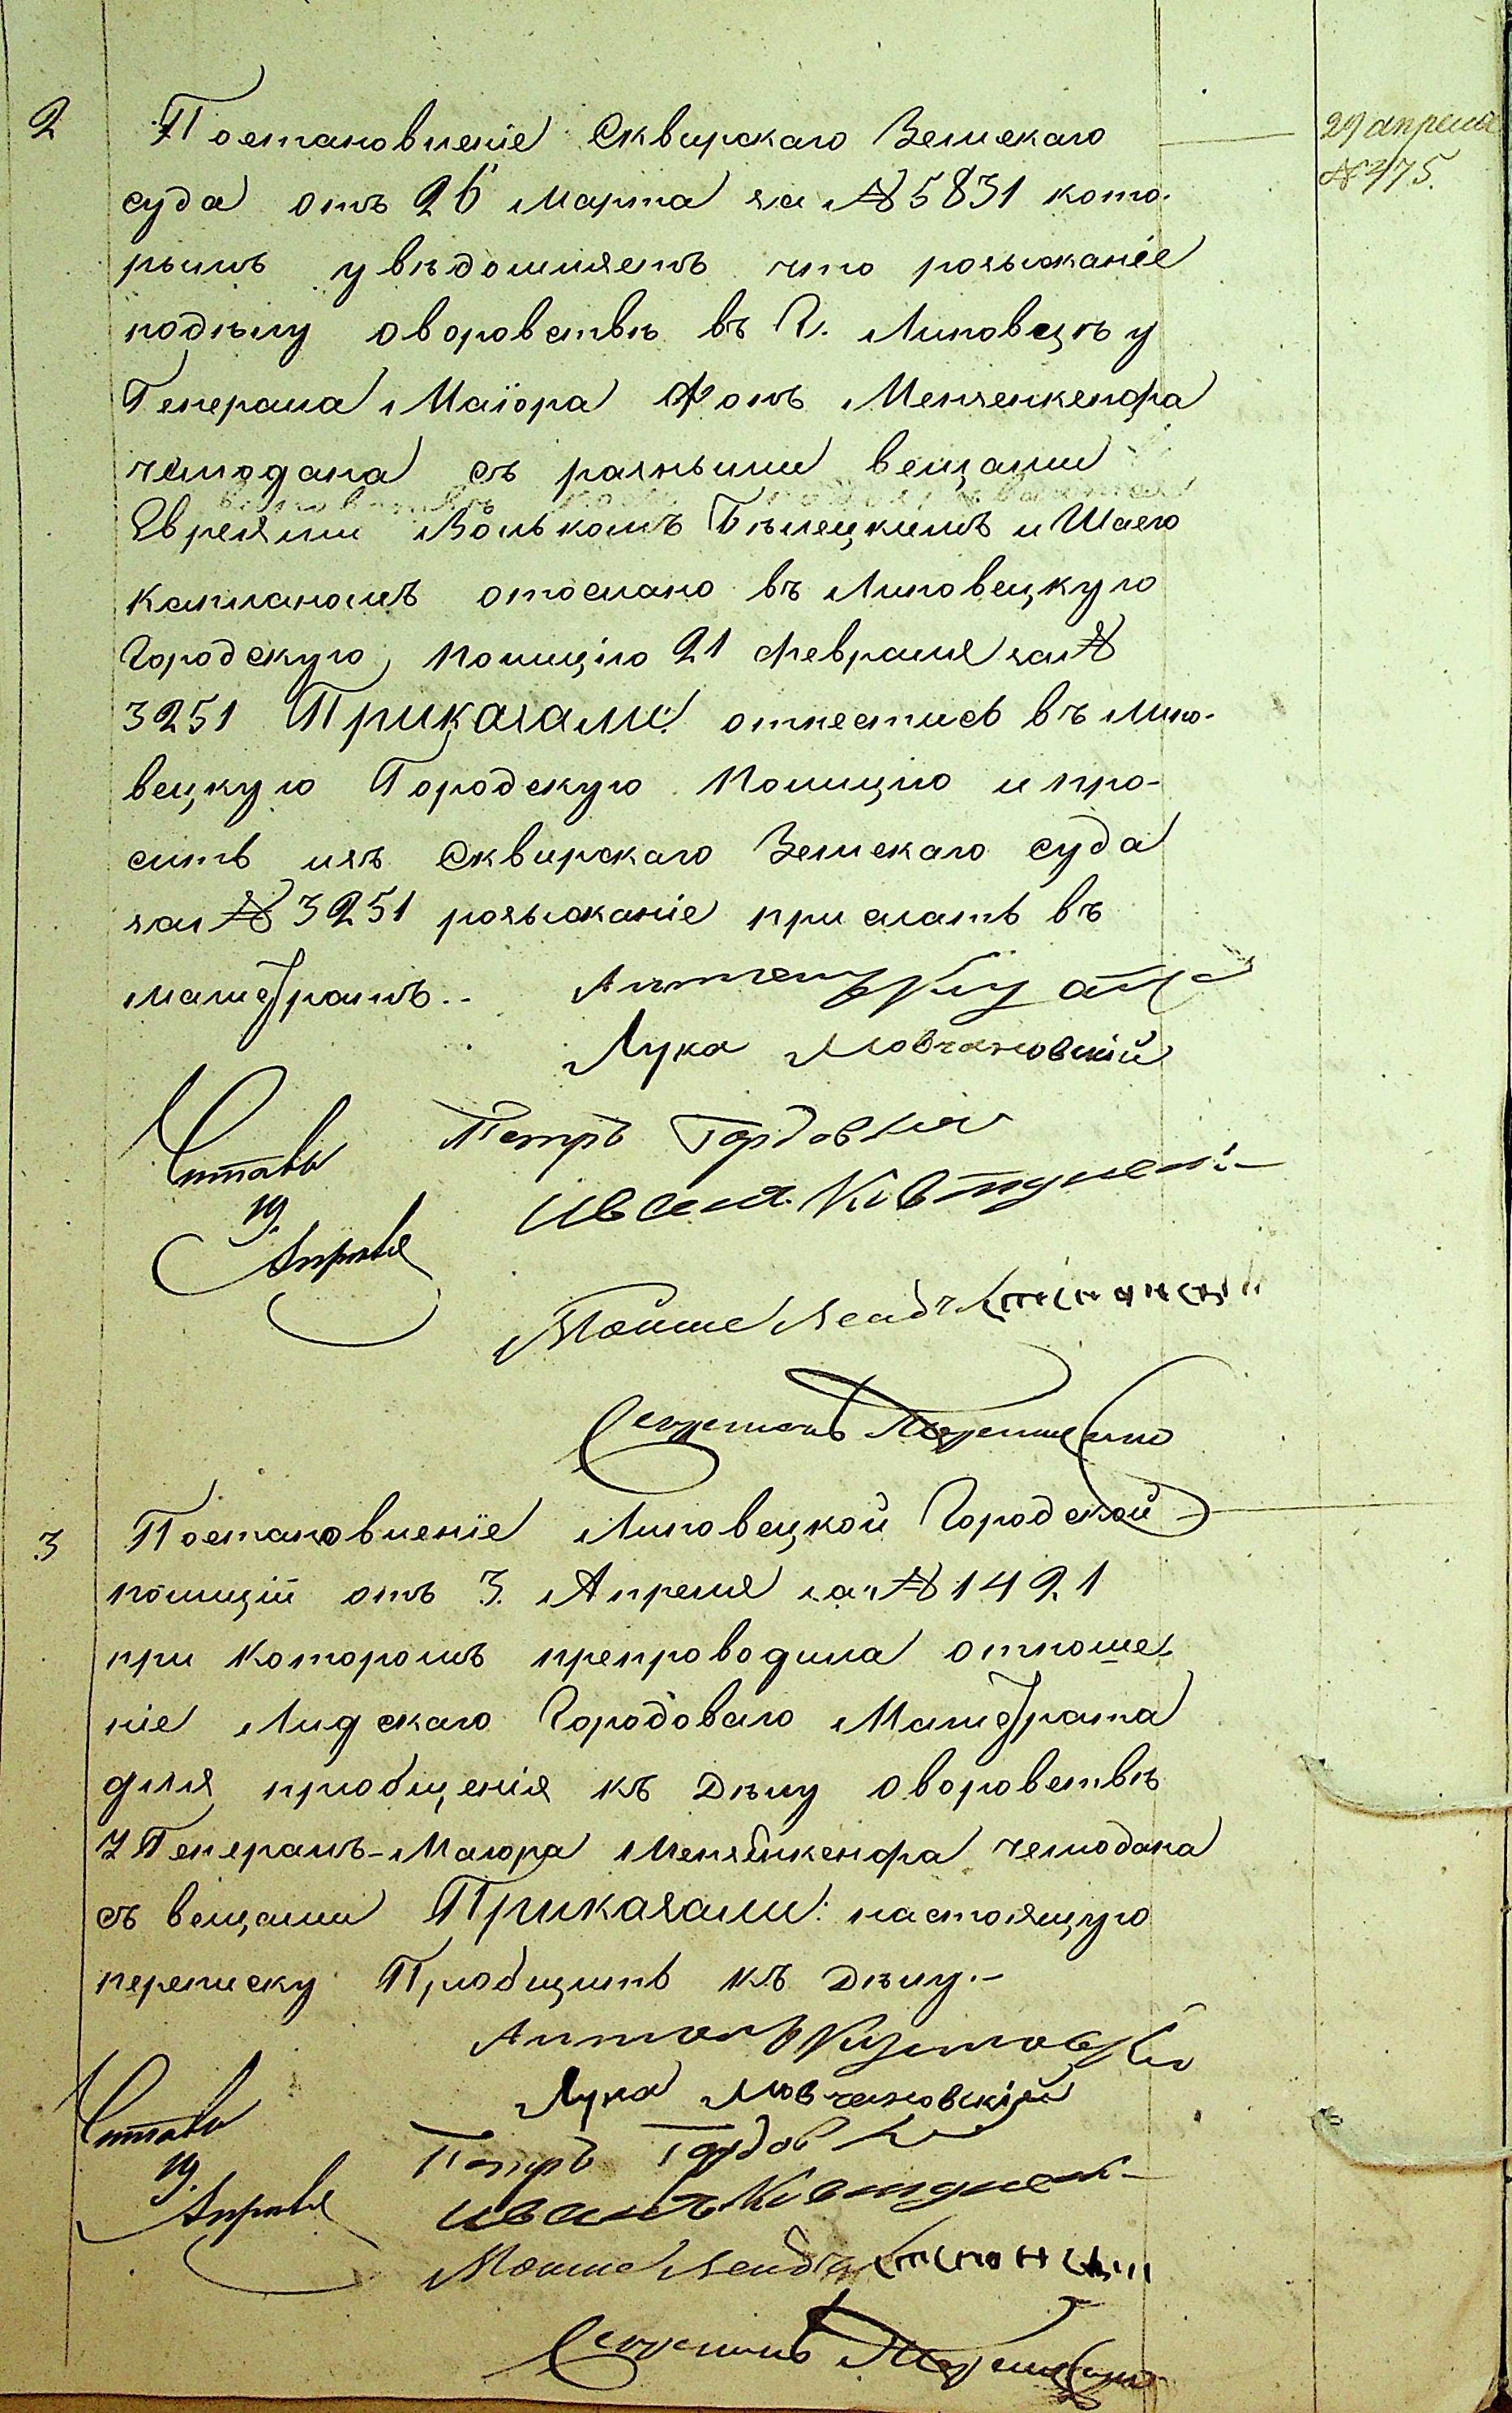 2
Постановленіе Сквирскаго Земскаго
29 апреля
№ 475.
суда отъ 26 Марта за № 5831 кото-
рымъ увѣдомляетъ что розысканіе
подѣлу оворовствѣ въ Г. Липовецѣ у
Генерала Маіора Фонъ Мензенкенфа
чемодана съ разными вещами
Евреями Волькомъ Бѣлецкимъ и Шаею
Капланомъ отослано въ Липовецкую
Городскую Полицію 21 февраля за №
3251 Приказали: отнестись въ Липо-
вецкую Городскую Полицію и про-
сить изъ Сквирскаго Земскаго суда
за № 3251 розысканіе прислать въ
магистратъ.-
Лука Мовчановскій
Читалъ Петръ Гордов
19. Иванъ
Апрѣля
Мошко
3
Постановленіе Липовецкой Городской
полиціи отъ 3. Апреля за № 1421
при которомъ препроводила отноше-
ніе Лидскаго Городоваго Магистрата
для пріобщенія къ Дѣлу оворовствѣ
У Генералъ-Маіора Мензенкенфа чемодана
съ вещами Приказали: настоящую
переписку Пріобщить къ Дѣлу.-
Антонъ
Лука Мовчановскій
Читалъ Петръ Гордов
19. Иванъ
Апрѣля
Мошко